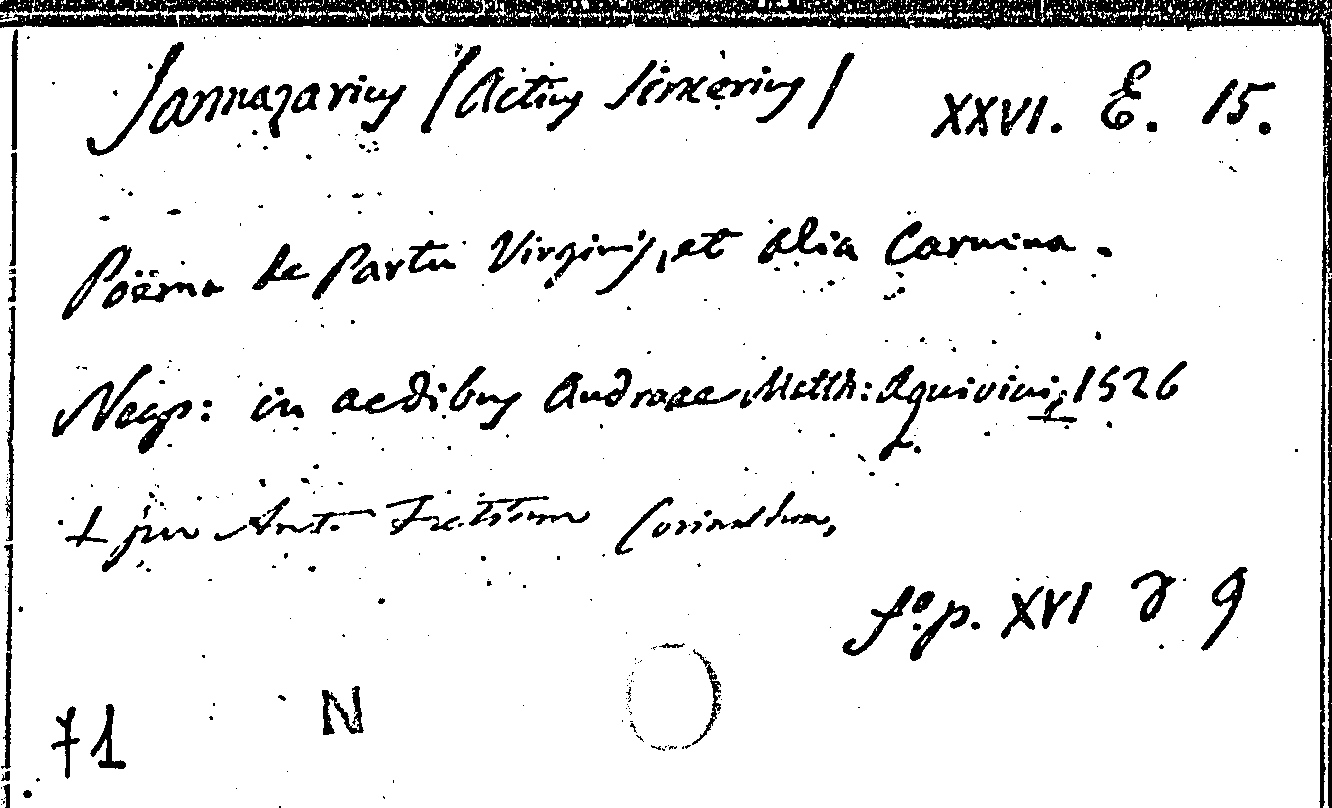 Sannazarius /Actius Sincerius/ XXVI. E. 15.
Poëma de Partu Virginis, et alia Carmina.
Neap: in aedibus Andreae Matth: Aquivivi, 1526
+ per Ant. Fretiam Corinaldum,
f.º p. XVI 9
71 N